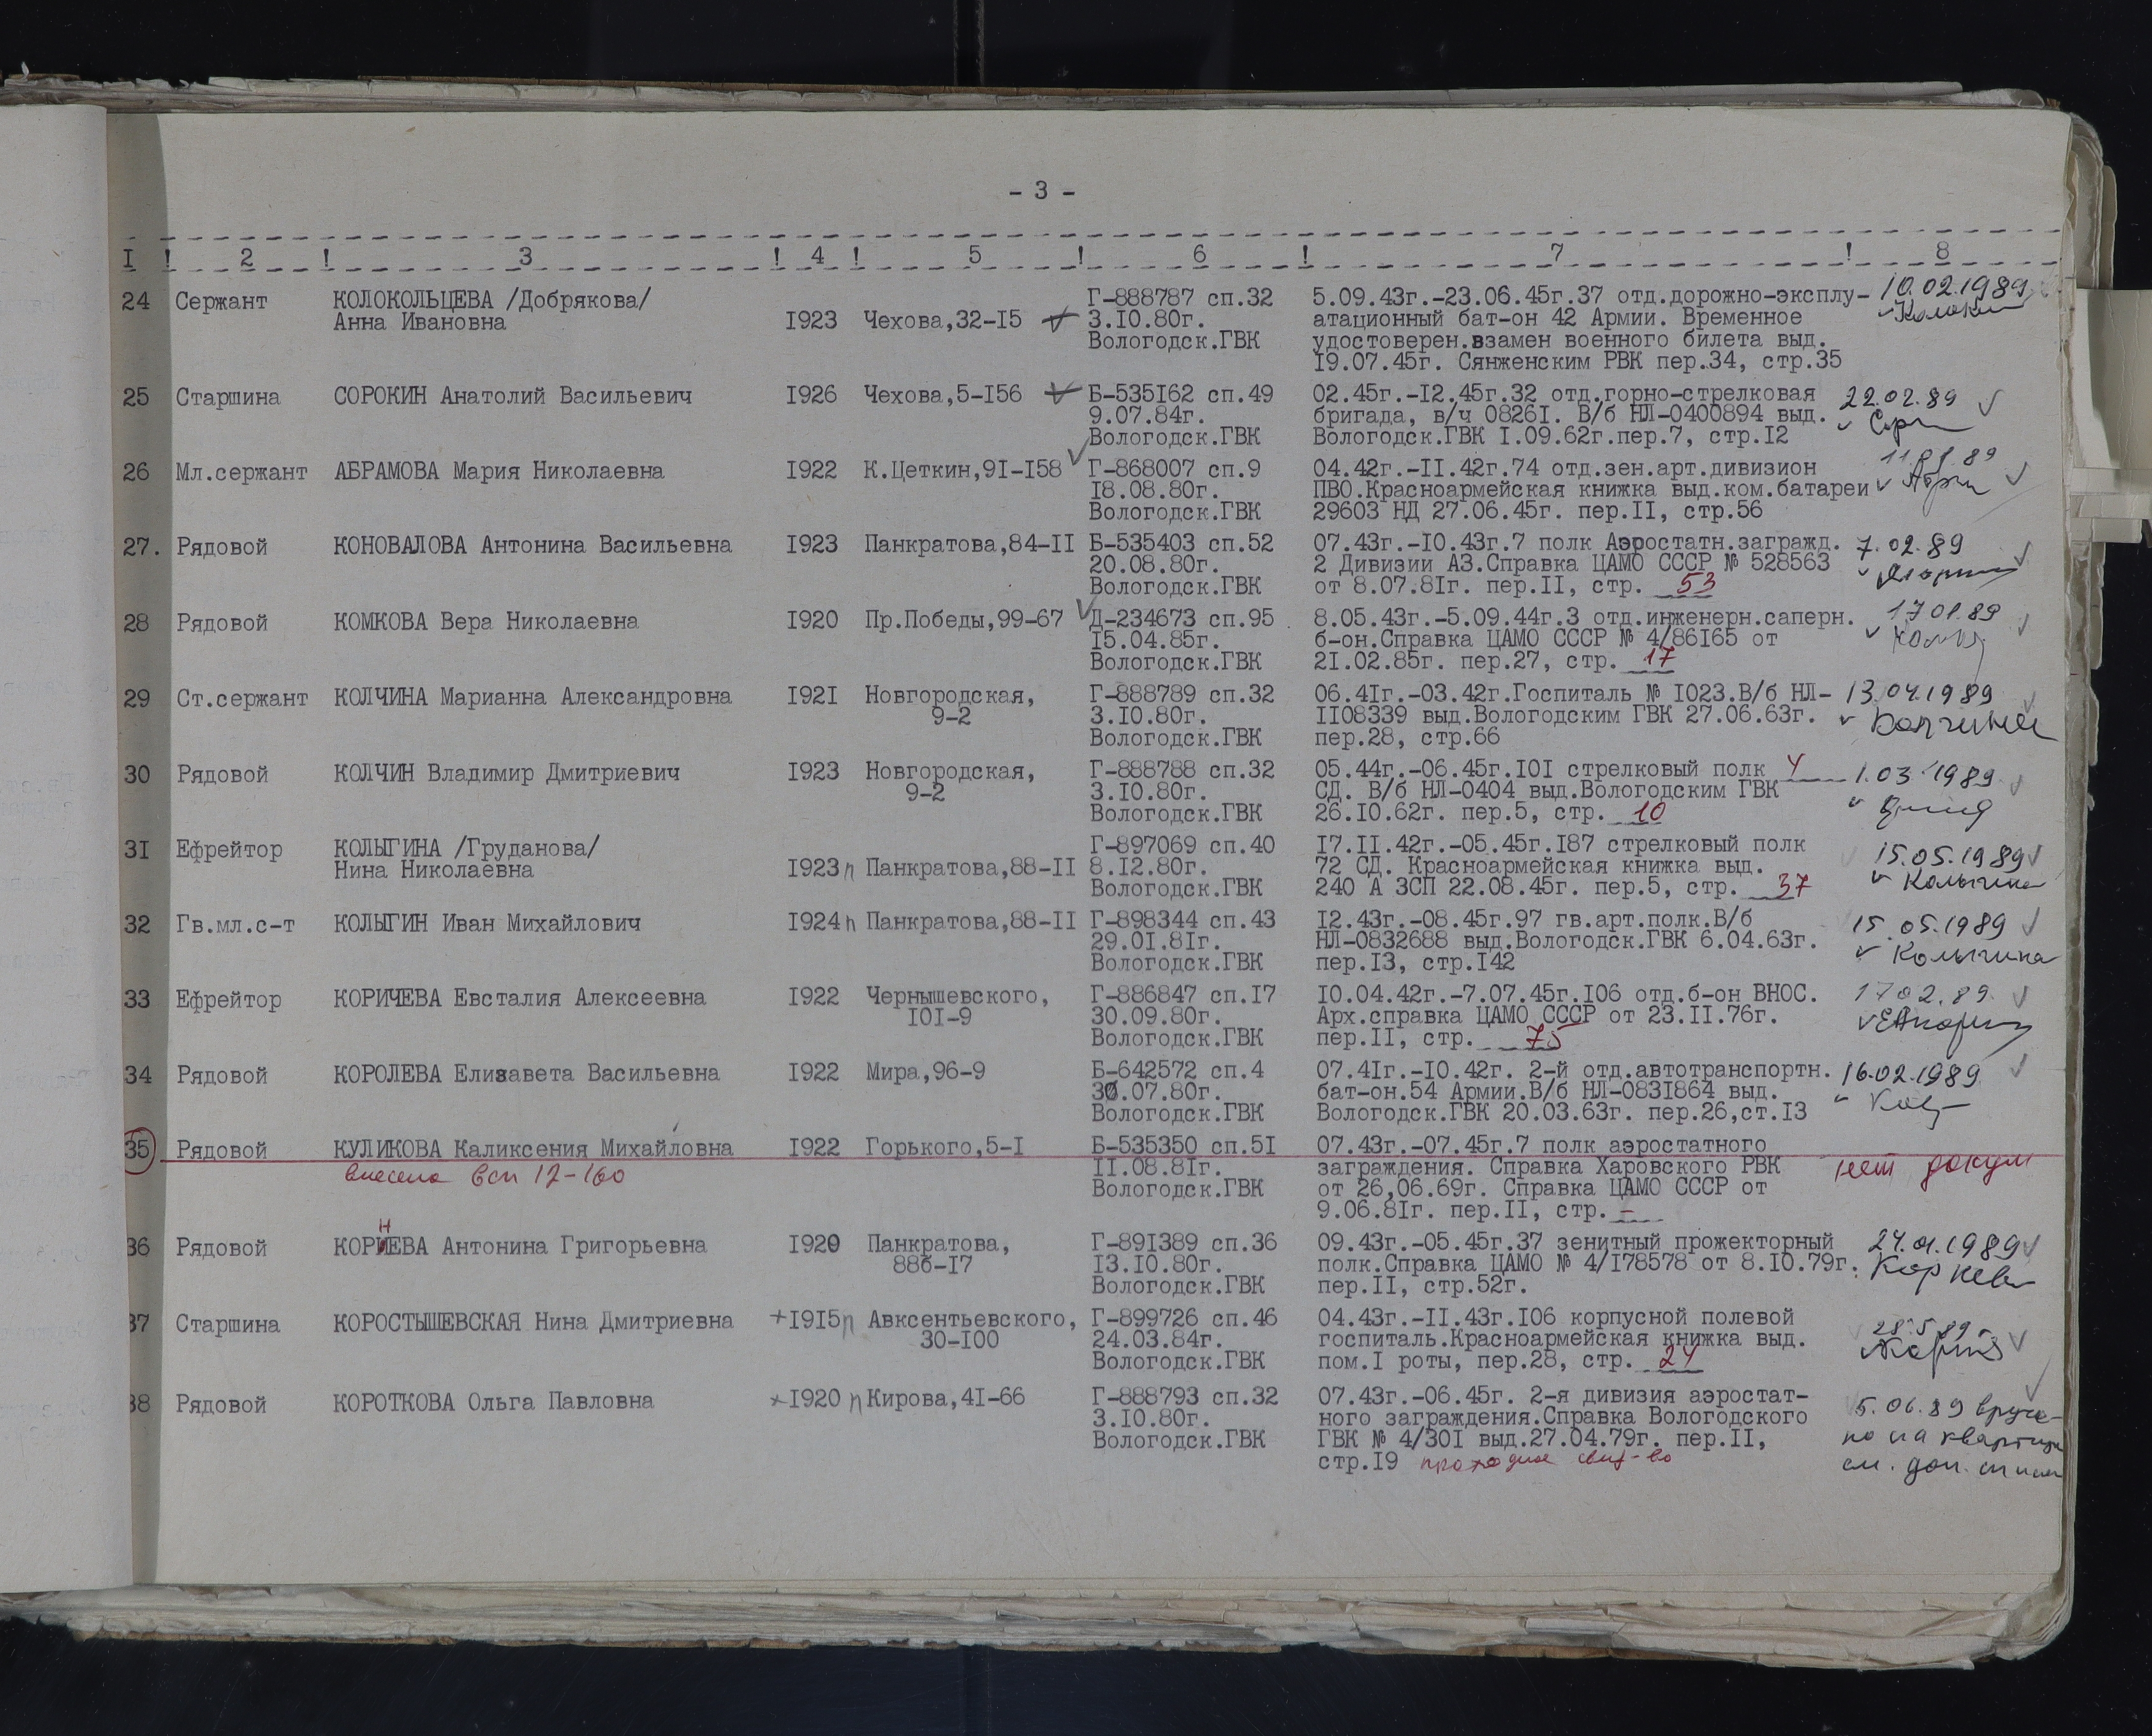 - 3 -
I ! 2 ! 3 ! 4 ! 5 ! 6 ! 7 ! 8
24 Сержант КОЛОКОЛЬЦЕВА /Добрякова/ Г-888787 сп.32 5.09.43г.-23.06.45г.37 отд.дорожно-эксплу- 10.02.1989
Анна Ивановна I923 Чехова,32-I5 3.I0.80г. атационный бат-он 42 Армии. Временное
Вологодск.ГВК удостоверен.взамен военного билета выд.
I9.07.45г. Сянженским РВК пер.34, стр.35
25 Старшина СОРОКИН Анатолий Васильевич I926 Чехова,5-I56 Б-535I62 сп.49 02.45г.-I2.45г.32 отд.горно-стрелковая 22.02.89
9.07.84г. бригада, в/ч 0826I. В/б НЛ-0400894 выд.
Вологодск.ГВК Вологодск.ГВК I.09.62г.пер.7, стр.I2
26 Мл.сержант АБРАМОВА Мария Николаевна I922 К.Цеткин,9I-I58 Г-868007 сп.9 04.42г.-II.42г.74 отд.зен.арт.дивизион
I8.08.80г. ПВО.Красноармейская книжка выд.ком.батареи
Вологодск.ГВК 29603 НД 27.06.45г. пер.II, стр.56
27. Рядовой КОНОВАЛОВА Антонина Васильевна I923 Панкратова,84-II Б-535403 сп.52 07.43г.-I0.43г.7 полк Аэростатн.загражд. 7.02.89
20.08.80г. 2 Дивизии АЗ.Справка ЦАМО СССР № 528563
Вологодск.ГВК от 8.07.8Iг. пер.II, стр. 53
28 Рядовой КОМКОВА Вера Николаевна I920 Пр.Победы,99-67 Д-234673 сп.95 8.05.43г.-5.09.44г.3 отд.инженерн.саперн. 17 01.89
I5.04.85г. б-он.Справка ЦАМО СССР № 4/86I65 от
Вологодск.ГВК 2I.02.85г. пер.27, стр. 17
29 Ст.сержант КОЛЧИНА Марианна Александровна I92I Новгородская, Г-888789 сп.32 06.4Iг.-03.42г.Госпиталь № I023.В/б НЛ- 13.04.1989
9-2 3.I0.80г. II08339 выд.Вологодским ГВК 27.06.63г. Колчина
Вологодск.ГВК пер.28, стр.66
30 Рядовой КОЛЧИН Владимир Дмитриевич I923 Новгородская, Г-888788 сп.32 05.44г.-06.45г.I0I стрелковый полк 4 1.03.1989
9-2 3.I0.80г. СД. В/б НЛ-0404 выд.Вологодским ГВК
Вологодск.ГВК 26.I0.62г. пер.5, стр. 10
3I Ефрейтор КОЛЫГИНА /Груданова/ Г-897069 сп.40 I7.II.42г.-05.45г.I87 стрелковый полк 15.05.1989
Нина Николаевна I923 п Панкратова,88-II 8.I2.80г. 72 СД. Красноармейская книжка выд. Колыгина
Вологодск.ГВК 240 А ЗСП 22.08.45г. пер.5, стр. 37
32 Гв.мл.с-т КОЛЫГИН Иван Михайлович I924 п Панкратова,88-II Г-898344 сп.43 I2.43г.-08.45г.97 гв.арт.полк.В/б 15.05.1989
29.0I.8Iг. НЛ-0832688 выд.Вологодск.ГВК 6.04.63г. Колыгина
Вологодск.ГВК пер.I3, стр.I42
33 Ефрейтор КОРИЧЕВА Евсталия Алексеевна I922 Чернышевского, Г-886847 сп.I7 I0.04.42г.-7.07.45г.I06 отд.б-он ВНОС. 17 02.89.
I0I-9 30.09.80г. Арх.справка ЦАМО СССР от 23.II.76г.
Вологодск.ГВК пер.II, стр. 75
34 Рядовой КОРОЛЕВА Елизавета Васильевна I922 Мира,96-9 Б-642572 сп.4 07.4Iг.-I0.42г. 2-й отд.автотранспортн. 16.02.1989
30.07.80г. бат-он.54 Армии.В/б НЛ-083I864 выд.
Вологодск.ГВК Вологодск.ГВК 20.03.63г. пер.26,ст.I3
35 Рядовой КУЛИКОВА Каликсения Михайловна I922 Горького,5-I Б-535350 сп.5I 07.43г.-07.45г.7 полк аэростатного
внесена в сп 12-160 II.08.8Iг. заграждения. Справка Харовского РВК нет докум
Вологодск.ГВК от 26,06.69г. Справка ЦАМО СССР от
9.06.8Iг. пер.II, стр. -
36 Рядовой КОРНЕВА Антонина Григорьевна I920 Панкратова, Г-89I389 сп.36 09.43г.-05.45г.37 зенитный прожекторный 24.01.1989
88б-I7 I3.I0.80г. полк.Справка ЦАМО № 4/I78578 от 8.I0.79г. Корнева
Вологодск.ГВК пер.II, стр.52г.
37 Старшина КОРОСТЫШЕВСКАЯ Нина Дмитриевна +I9I5 п Авксентьевского, Г-899726 сп.46 04.43г.-II.43г.I06 корпусной полевой 28.5.89
30-I00 24.03.84г. госпиталь.Красноармейская книжка выд.
Вологодск.ГВК пом.I роты, пер.28, стр. 24
38 Рядовой КОРОТКОВА Ольга Павловна I920 п Кирова,4I-66 Г-888793 сп.32 07.43г.-06.45г. 2-я дивизия аэростат- 5.06.89 вруче-
3.I0.80г. ного заграждения.Справка Вологодского но на квартире
Вологодск.ГВК ГВК № 4/30I выд.27.04.79г. пер.II, см. доп. список
стр.I9 проходное свид-во